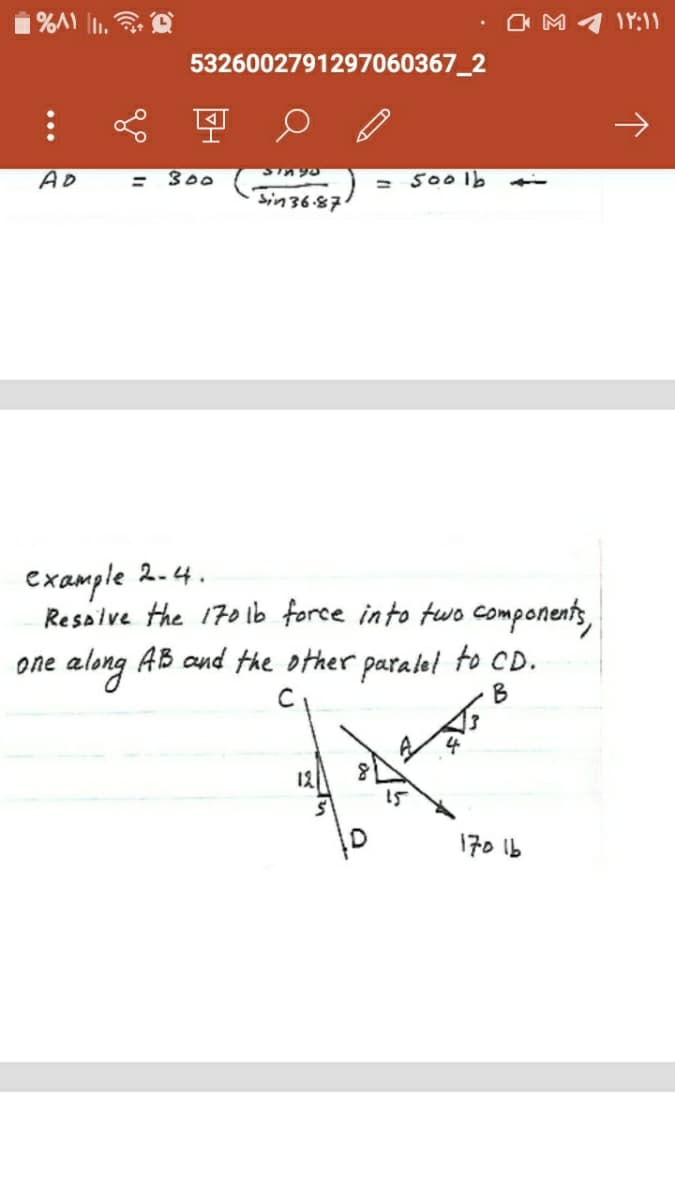 %۸۱ ۱۲:۱۱
5326002791297060367_2
AD = 300 ( sin 90 / sin 36.87 ) = 500 lb ←
example 2-4.
Resolve the 170 lb force into two components,
one along AB and the other paralel to CD.
C B
3
A 4
12 8
5 15
D 170 lb